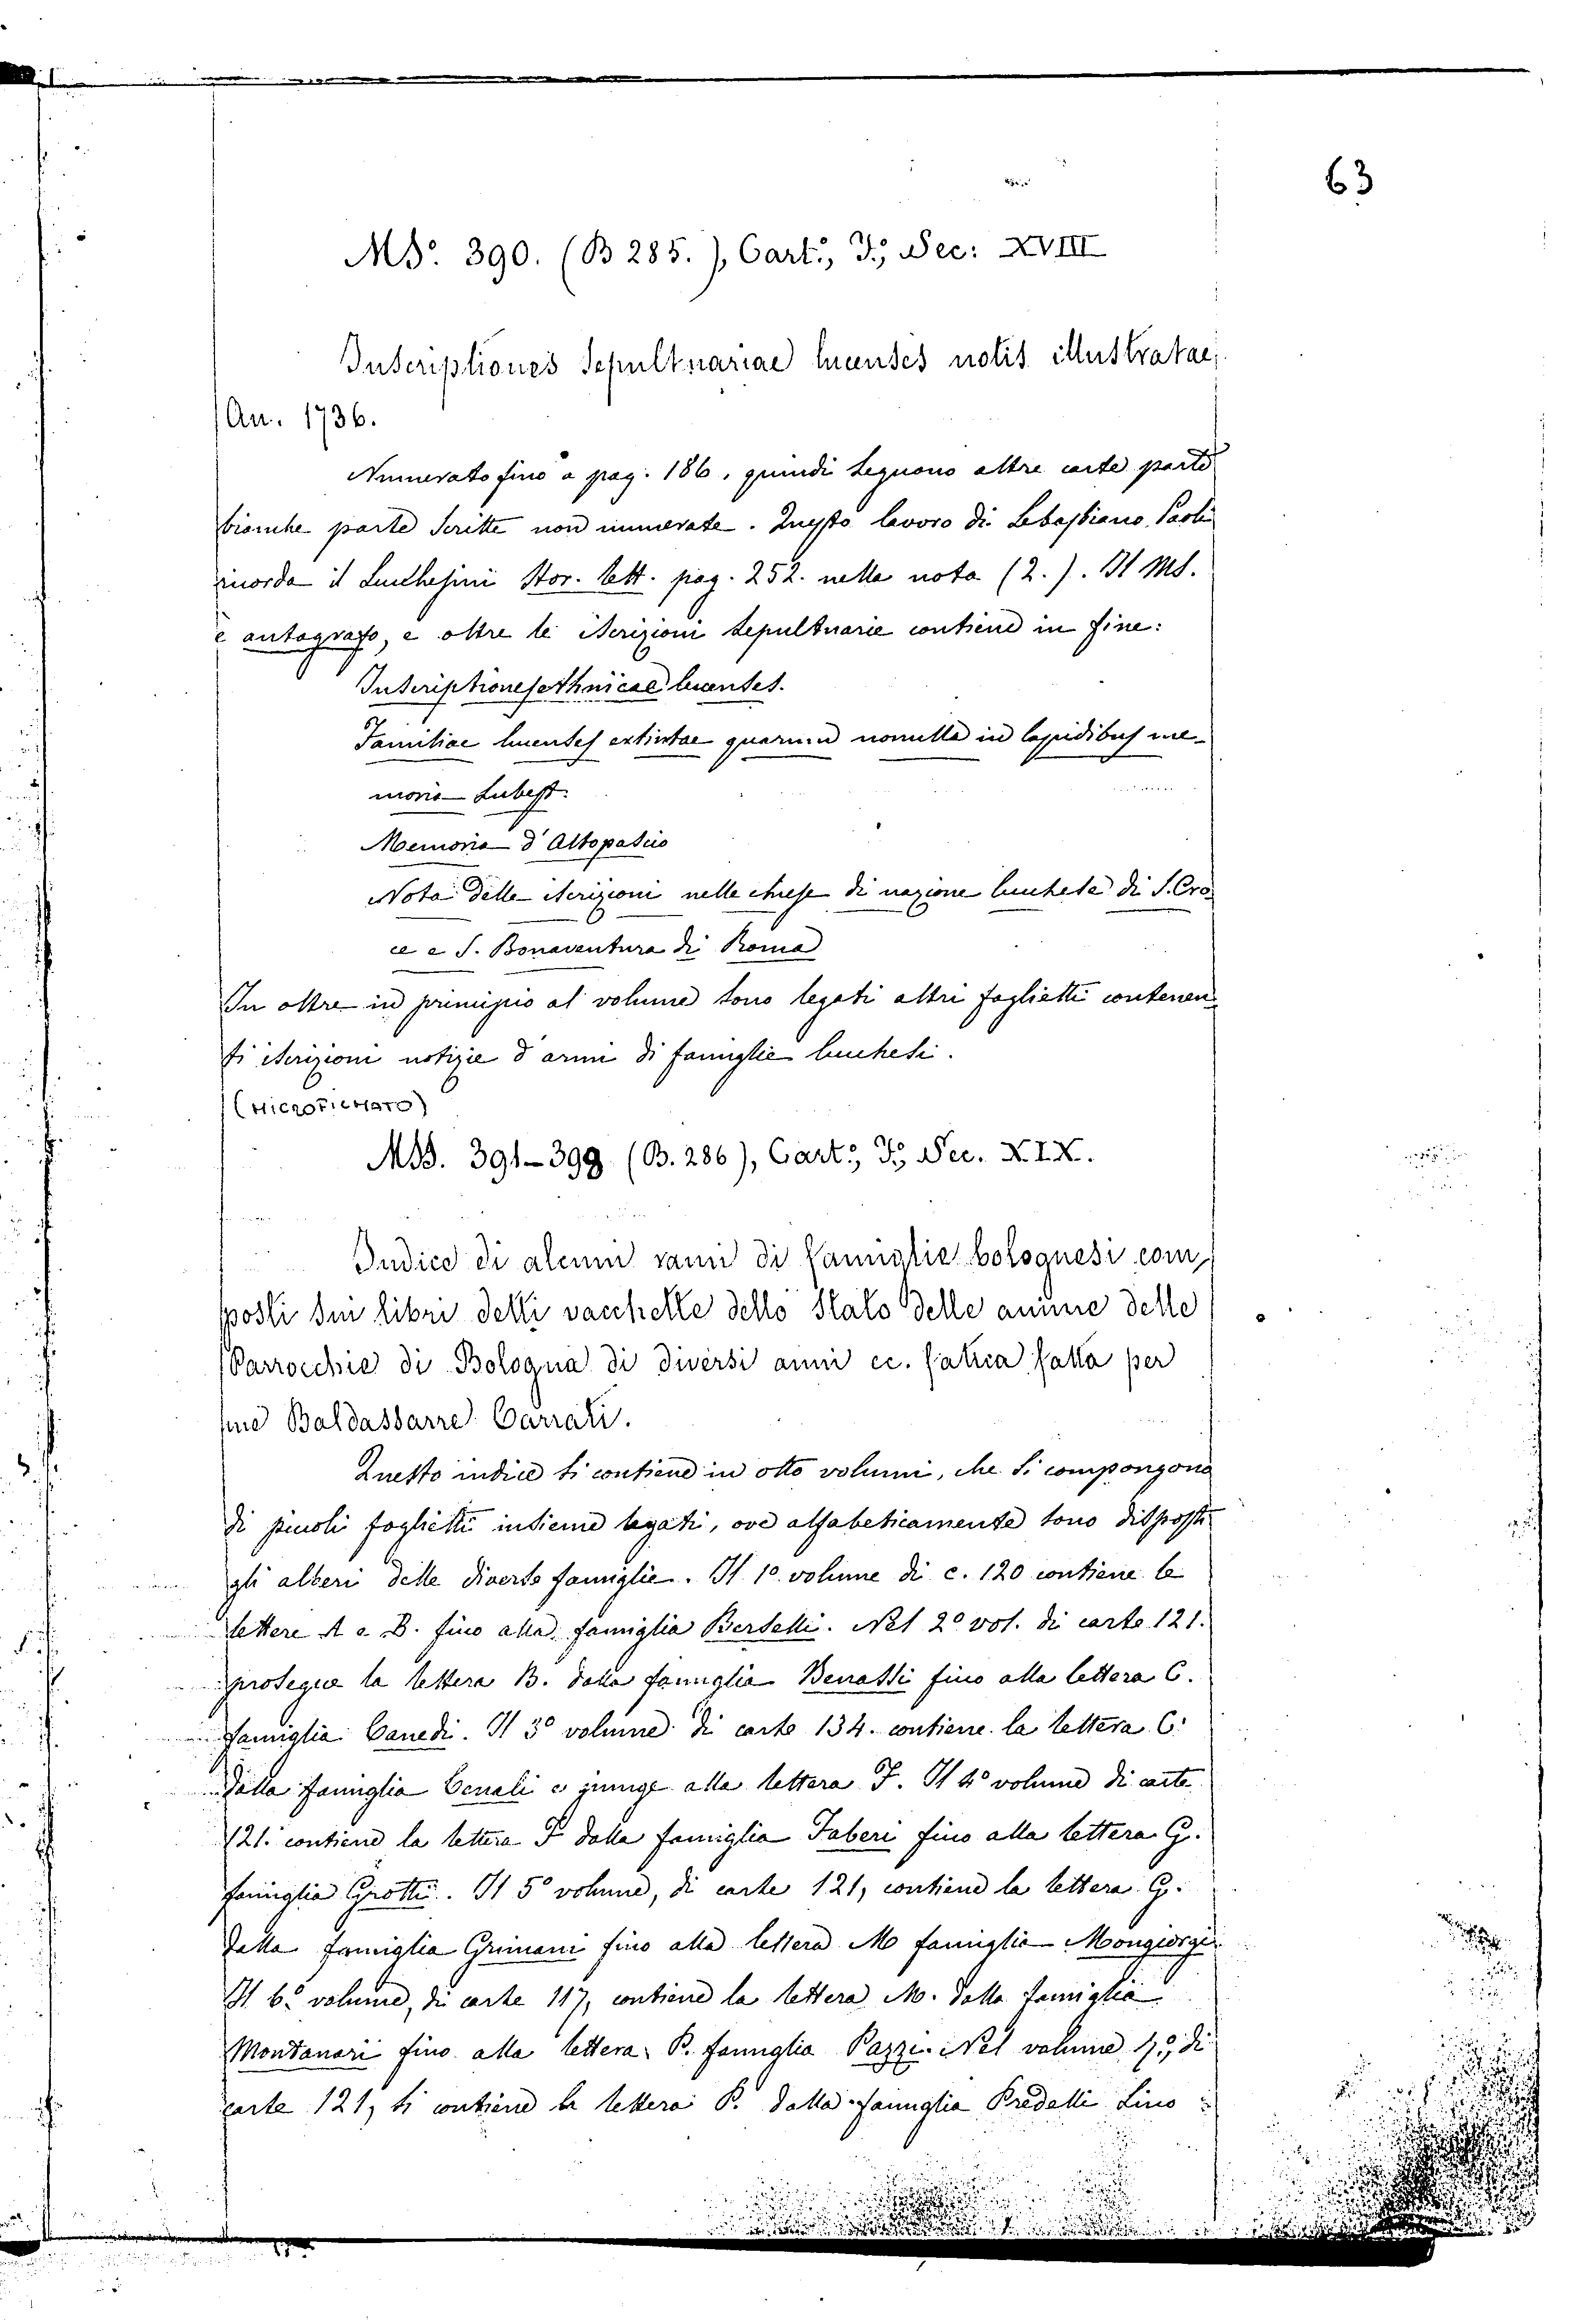 63
MS. 390. (B 285.), Cart., F., Sec: XVIII
Inscriptiones Sepultuariae lucenses notis illustratae,
An. 1736.
Numerato fino a pag. 186, quindi seguono altre carte parte
bianche parte scritte non numerate. Questo lavoro di Sebastiano Paoli
ricorda il Lucchesini Stor. lett. pag. 252. nella nota (2.). Il MS.
è autografo, e oltre le iscrizioni sepultuarie contiene in fine:
Inscriptiones ethnicae lucenses.
Familiae lucenses extinctae quarum nonulla in lapidibus me-
moria subest.
Memoria d'Altopascio
Nota delle iscrizioni nelle chiese di nazione lucchese di S. Cro-
ce e S. Bonaventura di Roma
In oltre in principio al volume sono legati altri foglietti contenen-
ti iscrizioni notizie d'armi di famiglie lucchesi.
(MICROFICHATO)
MSS. 391-399 (B. 286), Cart., F., Sec. XIX.
Indice di alcuni rami di famiglie bolognesi com
posti sui libri detti vacchette dello Stato delle anime delle
Parrocchie di Bologna di diversi anni ec. fatica fatta per
me Baldassarre Carrati.
Questo indice si contiene in otto volumi, che si compongono
di piccoli foglietti insieme legati, ove alfabeticamente sono disposti
gli alberi delle diverse famiglie. Il 1º volume di c. 120 contiene le
lettere A e B. fino alla famiglia Berselli. Nel 2º vol. di carte 121.
prosegue la lettera B. dalla famiglia Benassi fino alla lettera C.
famiglia Canedi. Il 3º volume di carte 134. contiene la lettera C.
dalla famiglia Cenali e giunge alla lettera F. Il 4º volume di carte
121. contiene la lettera F dalla famiglia Faberi fino alla lettera G.
famiglia Grotti. Il 5º volume, di carte 121, contiene la lettera G.
dalla famiglia Grimani fino alla lettera M famiglia Mongiorgi.
Il 6º volume, di carte 117, contiene la lettera M. dalla famiglia
Montanari fino alla lettera P. famiglia Pazzi. Nel volume 7º, di
carte 121, si contiene la lettera P. dalla famiglia Predelli sino